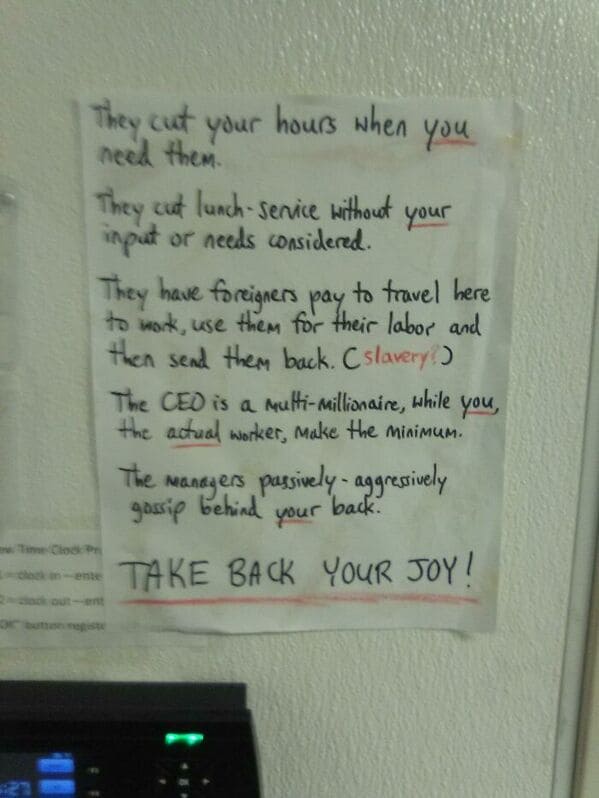 They cut your hours when you
need them.
They cut lunch-service without your
input or needs considered.
They have foreigners pay to travel here
to work, use them for their labor and
then send them back. (slavery?)
The CEO is a multi-millionaire, while you,
the actual worker, make the minimum.
The managers passively-aggressively
gossip behind your back.
TAKE BACK YOUR JOY!
Time Clock
clock in -
clock out -
button
:27
OK